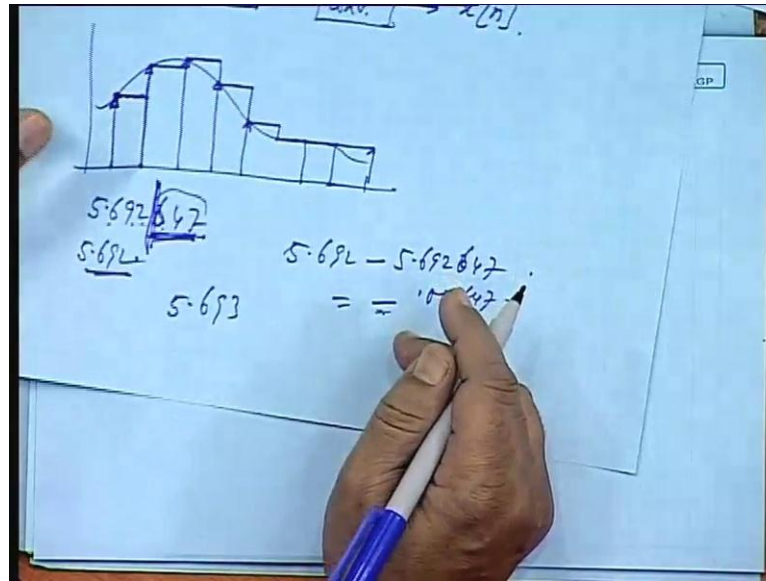 x[n].
GP
5.692647
5.692
5.692 - 5.692647
5.693
= -